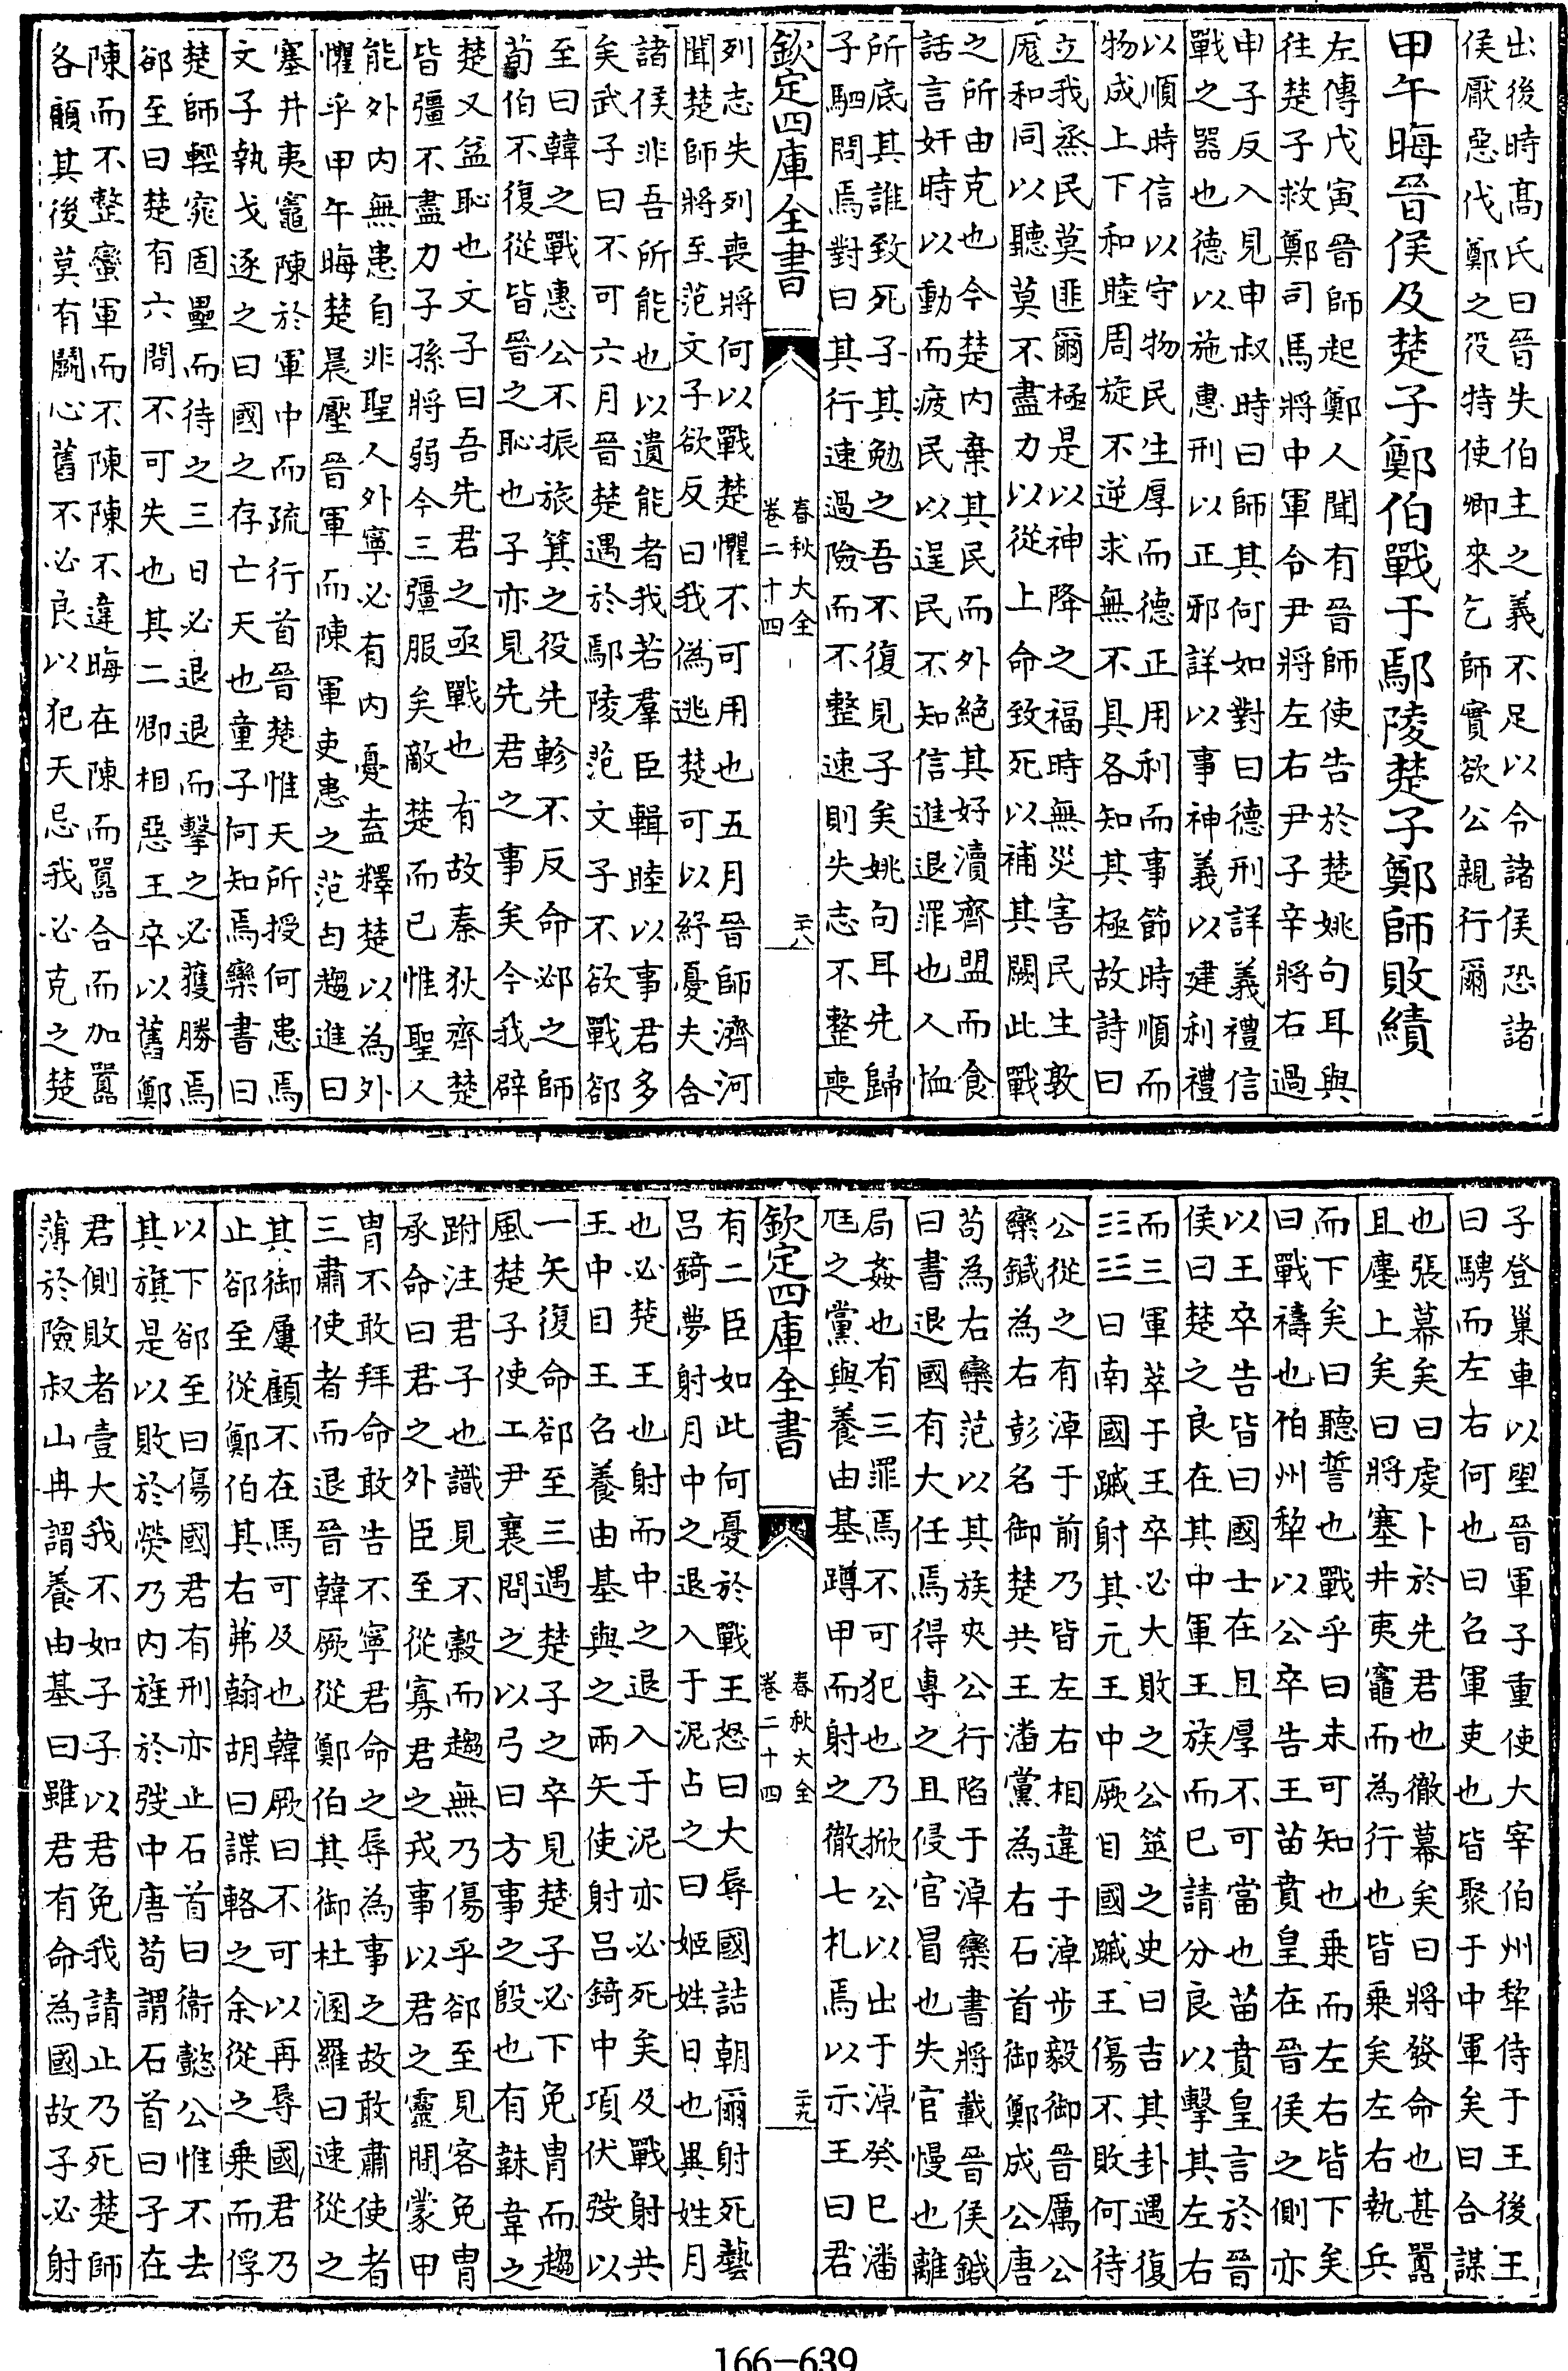 出後時髙氏曰晉失伯主之義不足以令諸侯恐諸
侯厭惡伐鄭之役特使卿來乞師實欲公親行爾
甲午晦晉侯及楚子鄭伯戰于鄢陵楚子鄭師敗績
左傳戊寅晉師起鄭人聞有晉師使告於楚姚句耳與
往楚子救鄭司馬將中軍令尹將左右尹子辛將右過
申子反入見申叔時曰師其何如對曰德刑詳義禮信
戰之器也德以施惠刑以正邪詳以事神義以建利禮
以順時信以守物民生厚而德正用利而事節時順而
物成上下和睦周旋不逆求無不具各知其極故詩曰
立我烝民莫匪爾極是以神降之福時無災害民生敦
厖和同以聽莫不盡力以從上命致死以補其闕此戰
之所由克也今楚内棄其民而外絶其好瀆齊盟而食
話言奸時以動而疲民以逞民不知信進退罪也人恤
所底其誰致死子其勉之吾不復見子矣姚句耳先歸
子駟問焉對曰其行速過險而不整速則失志不整喪
欽定四庫全書
春秋大全
卷二十四
二十八
列志失列喪將何以戰楚懼不可用也五月晉師濟河
聞楚師將至范文子欲反曰我偽逃楚可以紓憂夫合
諸侯非吾所能也以遺能者我若羣臣輯睦以事君多
矣武子曰不可六月晉楚遇於鄢陵范文子不欲戰郤
至曰韓之戰惠公不振旅箕之役先軫不反命邲之師
荀伯不復從皆晉之恥也子亦見先君之事矣今我辟
楚又益恥也文子曰吾先君之亟戰也有故秦狄齊楚
皆彊不盡力子孫將弱今三彊服矣敵楚而已惟聖人
能外内無患自非聖人外寧必有内憂盍釋楚以為外
懼乎甲午晦楚晨壓晉軍而陳軍吏患之范匄趨進曰
塞井夷竈陳於軍中而疏行首晉楚惟天所授何患焉
文子執戈逐之曰國之存亡天也童子何知焉欒書曰
楚師輕窕固壘而待之三日必退退而擊之必獲勝焉
郤至曰楚有六間不可失也其二卿相惡王卒以舊鄭
陳而不整蠻軍而不陳陳不違晦在陳而囂合而加囂
各顧其後莫有鬭心舊不必良以犯天忌我必克之楚
子登巢車以望晉軍子重使大宰伯州犂侍于王後王
曰騁而左右何也曰召軍吏也皆聚于中軍矣曰合謀
也張幕矣曰虔卜於先君也徹幕矣曰將發命也甚囂
且塵上矣曰將塞井夷竈而為行也皆乘矣左右執兵
而下矣曰聽誓也戰乎曰未可知也乘而左右皆下矣
曰戰禱也伯州犂以公卒告王苗賁皇在晉侯之側亦
以王卒告皆曰國士在且厚不可當也苗賁皇言於晉
侯曰楚之良在其中軍王族而已請分良以擊其左右
而三軍萃于王卒必大敗之公筮之史曰吉其卦遇復
☷☳曰南國蹙射其元王中厥目國蹙王傷不敗何待
公從之有淖于前乃皆左右相違于淖步毅御晉厲公
欒鍼為右彭名御楚共王潘黨為右石首御鄭成公唐
苟為右欒范以其族夾公行陷于淖欒書將載晉侯鍼
曰書退國有大任焉得專之且侵官冒也失官慢也離
局姦也有三罪焉不可犯也乃掀公以出于淖癸巳潘
尫之黨與養由基蹲甲而射之徹七札焉以示王曰君
欽定四庫全書
春秋大全
卷二十四
二十九
有二臣如此何憂於戰王怒曰大辱國詰朝爾射死藝
吕錡夢射月中之退入于泥占之曰姬姓日也異姓月
也必楚王也射而中之退入于泥亦必死矣及戰射共
王中目王召養由基與之兩矢使射吕錡中項伏弢以
一矢復命郤至三遇楚子之卒見楚子必下免胄而趨
風楚子使工尹襄問之以弓曰方事之殷也有韎韋之
跗注君子也識見不穀而趨無乃傷乎郤至見客免胄
承命曰君之外臣至從寡君之戎事以君之靈間蒙甲
胄不敢拜命敢告不寧君命之辱為事之故敢肅使者
三肅使者而退晉韓厥從鄭伯其御杜溷羅曰速從之
其御屢顧不在馬可及也韓厥曰不可以再辱國君乃
止郤至從鄭伯其右茀翰胡曰諜輅之余從之乘而俘
以下郤至曰傷國君有刑亦止石首曰衞懿公惟不去
其旗是以敗於熒乃内旌於弢中唐苟謂石首曰子在
君側敗者壹大我不如子子以君免我請止乃死楚師
薄於險叔山冉謂養由基曰雖君有命為國故子必射
166-639